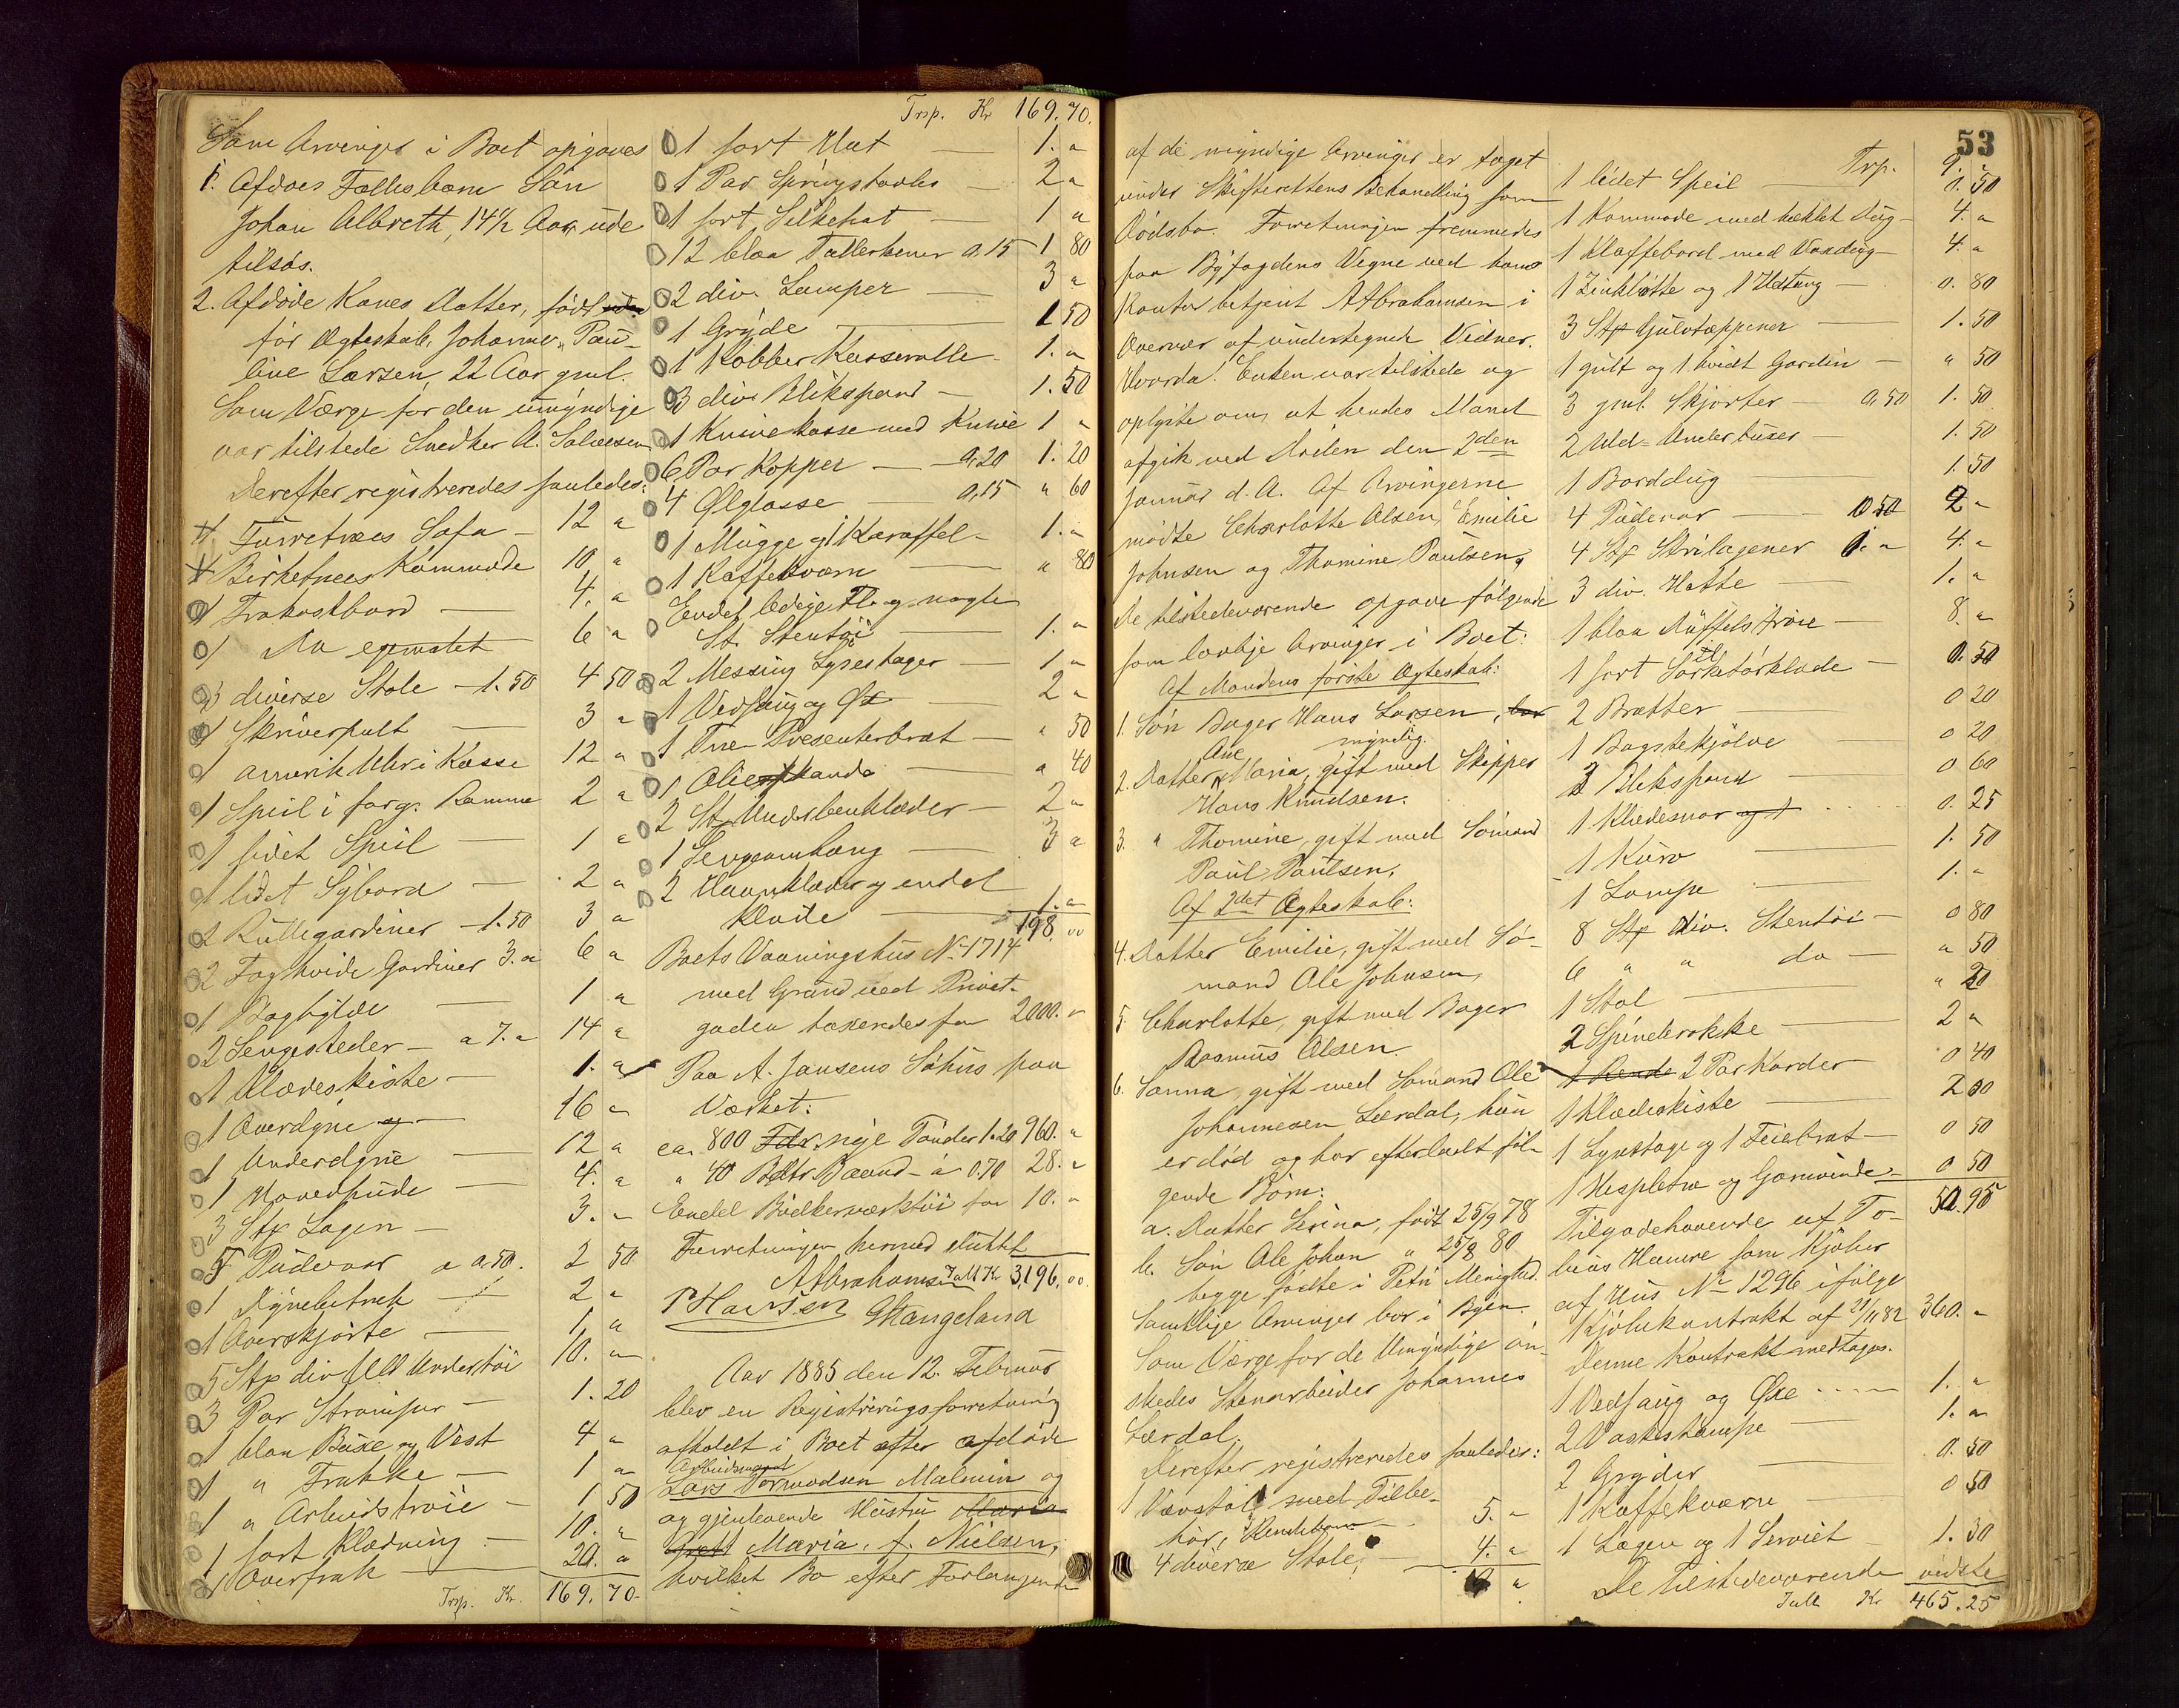 Som Arvinger i Boet opgaves
1. Afdøes Fællesbarn Søn
Johan Albreth, 14 1/2 Aar, ude
tilsøs.
2. Afdøde Kones Datter, født
før Ægteskab, Johanne Pau-
line Larsen, 22 Aar gml.
Som Værge for den umyndige
var tilstede Snedker A. Salvesen
Derefter registreredes saaledes:
1 Furretræes Sofa - 12 "
1 Birketræes Kommode 10 "
1 Frokostbord - 4. "
1 Do egemalet 6 "
3 diverse Stole - 1.50 4 50
1 Skriverpult - 3 "
1 amerik Uhr i Kasse 12 "
1 Speil i forg. Ramme 2 "
1 lidet Speil - 1 "
1 lidet Sybord - 2 "
2 Rullegardiner - 1.50 3 "
2 Fag hvide Gardiner 3. " 6 "
1 Boghylde - 1 "
2 Sengesteder - a 7. " 14 "
1 Klædeskiste - 1. "
1 Overdyne - 16 "
1 Underdyne - 12 "
1 Hovedpude - 4. "
3 Stk Lagen - 3. "
5 Pudevar a 0.50. 2 50
1 Dynebetræk - 2 "
1 Overskjorte - 1 "
5 Stk div Uld Undertøi 10. "
3 Par Strømper - 1.20
1 blaa Buxe og Vest 4 "
1 " Frakke - 1 "
1 " Arbeidstrøie - 1 50
1 sort Klædning - 10. "
1 Overfrak - 20. "
Trsp. Kr. 169.70.
Trsp. Kr 169.70.
1 sort Hat - 1. "
1 Par Springstøvler - 2 "
1 sort Silkehat - 1 "
12 blaa Tallerkener 0.15 1 80
2 div. Lamper - 3 "
1 Gryde - 1 50
1 Kobber Kasserolle - 1. "
3 div. Blikspand - 1.50
1 Knivekasse med Knive 1 "
6 Par Kopper - 0.20 1.20
4 Ølglasse - 0.15 " 60
1 Mugge og 1 Karaffel - 1. "
1 Kaffekværn - " 80
Endel ledige Fl. og nogle
St. Stentøi - 1. "
2 Messing Lysestager - 1 "
1 Vedsaug og Øx - 2 "
1 Træ Presenterbræt - " 50
1 Oliekande - " 40
2 St. Undsbenklæder - 2 "
1 Sengeomhæng - 3 "
2 Haandklæder og endel
Klude - 1. "
198. 00
Boets Vaaningshus No 1714
med Grund ved Privat-
gaden taxeredes for 2000. "
Paa A. Jansens Søhus paa
Værket:
ca. 800 nye Tønder 1.20 960. "
" 40 Bdtr. Baand - á 0.70 28. "
Endel Bødkerværktøi for 10. "
Forretningen hermed sluttet
AAbrahamsen Ialt Kr 3,196.00.
P Hansen GHangeland
Aar 1885 den 12. Februar
blev en Registreringsforretning
afholdt i Boet efter afdøde
Arbeidsmand
Lars Tormodsen Malmin og
og gjenlevende Hustru Maria
Maria, f. Nielsen,
hvilket Bo efter Forlangende
53
af de myndige Arvinger er taget
under Skifterettens Behandling som
Dødsbo. Forretningen fremmedes
paa Byfogdens Vegne ved hans
Kontorbetjent AAbrahamsen i
Overvær af undertegnede Vidner.
Hvorda! Enken var tilstede og
oplyste om, at hendes Mand
afgik ved Døden den 2den
Januar d. A. Af Arvingerne
mødte Charlotte Olsen, Emilie
Johnsen og Thomine Paulsen.
De tilstedeværende opgave følgende
som lovlige Arvinger i Boet:
Af Mandens første Ægteskab:
1. Søn Bager Hans Larsen,
myndig.
2. Datter Ane Maria, gift med Skipper
Hans Knudsen.
3. " Thomine, gift med Sømand
Paul Paulsen.
Af 2det Ægteskab:
4. Datter Emilie, gift med Sø-
mand Ole Johnsen,
5. Charlotte, gift med Bager
Rasmus Olsen.
6. Sanna, gift med Sømand Ole
Johannesen Lærdal; hun
er død og har efterladt føl-
gende Børn:
a. Datter Serina, født 25/9 78
b. Søn Ole Johan " 25/8 80
begge fødte i Petri Menighed.
Samtlige Arvinger bor i Byen.
Som Værge for de Umyndige øn-
skedes Stenarbeider Johannes
Lærdal.
Derefter registreredes saaledes:
1 Vævstol med Tilbe-
hør, Rendebom - 5. "
4 diverse Stole, 4. "
9 "
Trsp. 9. "
1 lidet Speil - 0.50
1 Kommode med heklet Dug - 4. "
1 Klaffebord med Voxdug - 4. "
1 Zinkbøtte og 1 Ildtang - 0.80
3 Stk Gulvtæppener - 1.50
1 gult og 1 hvidt Gardin - " 50
3 gml. Skjorter - 0.50 1.50
2 Uld-Underbuxer - 1.50
1 Borddug - 1.50
4 Pudevar - 0 50 2 "
4 Stk Strilagener 1. " 4. "
3 div. Hatte - 1. "
1 blaa Düffelstrøie - 8. "
1 sort Silketørklæde - 0.50
2 Brætter - 0 20
1 Bagstekjølve - 0 20
3 Blikspand - 0 60
1 Klædesnor - 0.25
1 Kurv - 1.50
1 Lampe - 1. "
8 Stk div. Stentøi - 0 80
6 " " do - " 50
1 Stol - " 20
2 Spinderokke - 2 "
2 Par Karder - 0 40
1 Klædeskiste - 2 00
1 Lysestage og 1 Feiebræt - 0 50
1 Hespletræ og Garnvinde - 0 50
50.95
Tilgodehavende af To-
bias Hamre som Kjøber
af Hus No 1296 ifølge
Kjøbekontrakt af 21/11 82 360. "
Denne Kontrakt medtages.
1 Vedsaug og Øxe - 1. "
2 Vaskestampe - 1. "
2 Gryder - 0.50
1 Kaffekværn - 0 50
1 Lagen og 1 Serviet - 1.30
De Tilstedeværende vidste
Ialt Kr 465.25